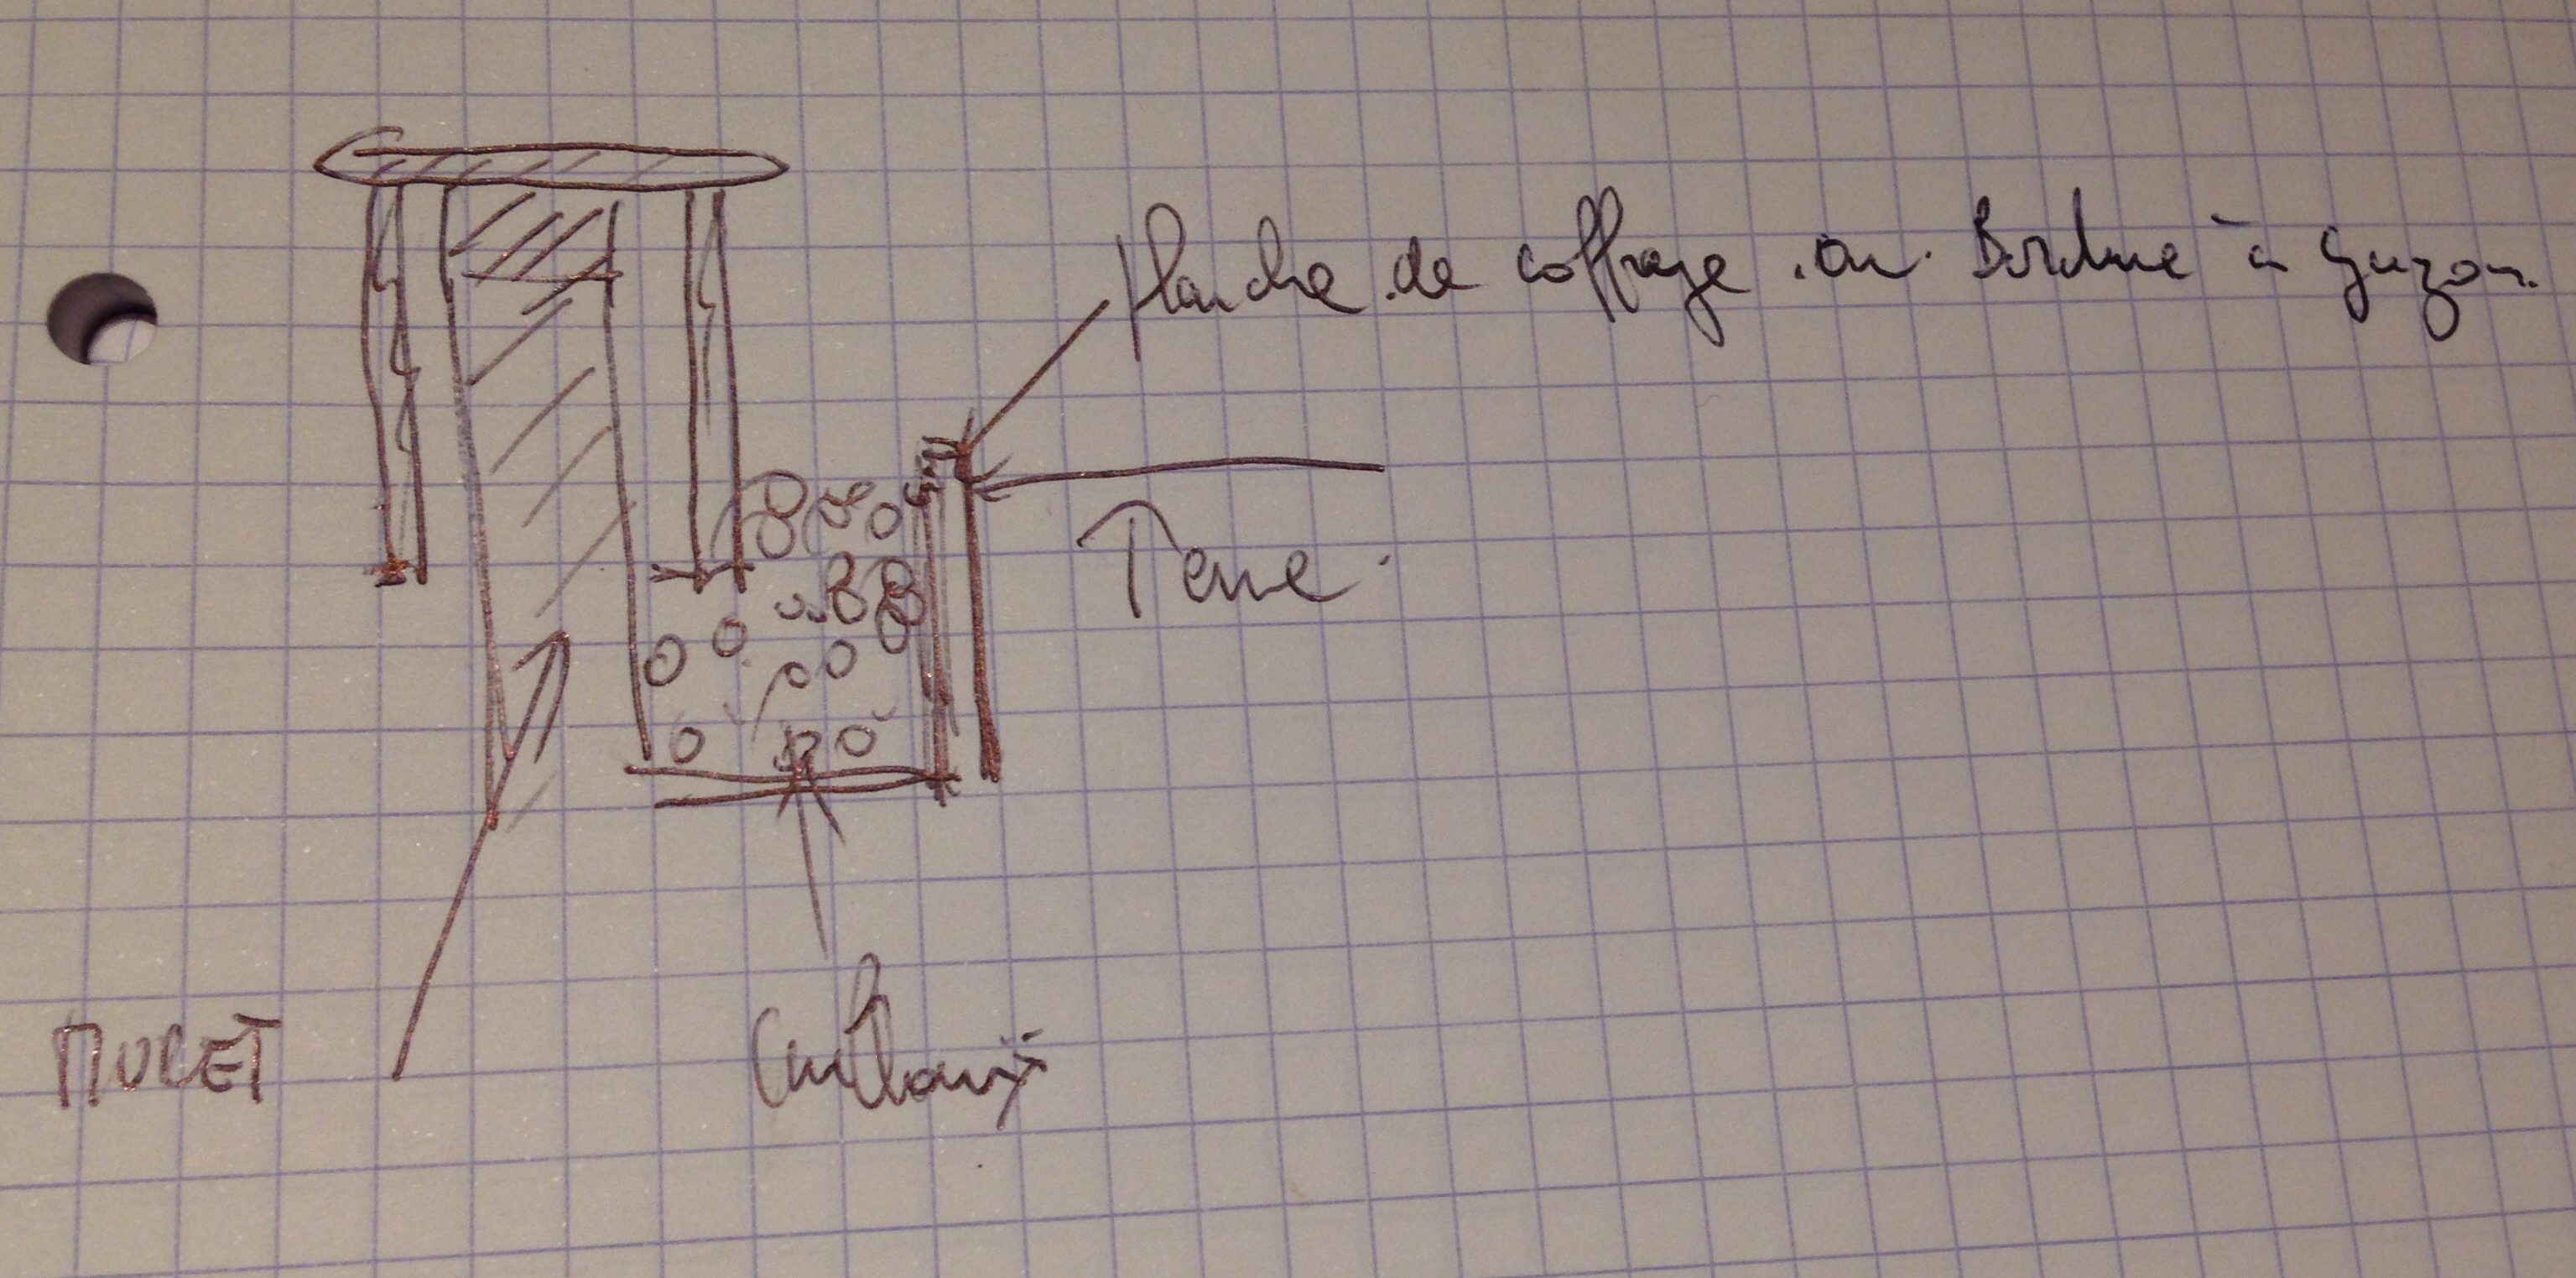 Planche de coffrage ou Bordure à gazon.
Terre.
MURET